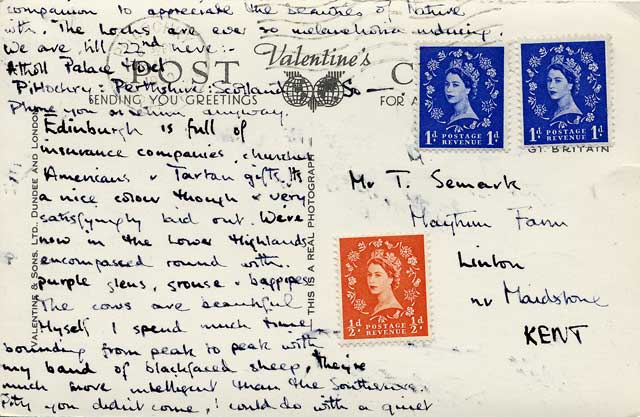 companion to appreciate the beauties of Nature
with. The Lochs are ever so melancholia inducing.
We are till 22nd here:-
Atholl Palace Hotel
Pitlochry: Perthshire: Scotland So —
Phone you on return anyway.
Valentine's
POST C
BENDING YOU GREETINGS FOR A
Edinburgh is full of
insurance companies, churches
Americans & Tartan gifts. Its
a nice colour though & very
satisfyingly laid out. We're
now in the Lower Highlands
encompassed round with
purple glens, grouse & bagpipes
The cows are beautiful
Myself I spend much time
bounding from peak to peak with
my band of blackfaced sheep, they're
much more intelligent than the Southerners.
Pity you didn't come, I could do with a quiet
VALENTINE & SONS, LTD. DUNDEE AND LONDON
THIS IS A REAL PHOTOGRAPH
1d POSTAGE REVENUE 1d
1d POSTAGE REVENUE 1d
GT. BRITAIN
Mr T. Semark
Maytham Farm
Linton
nr Maidstone
KENT
½d POSTAGE REVENUE ½d